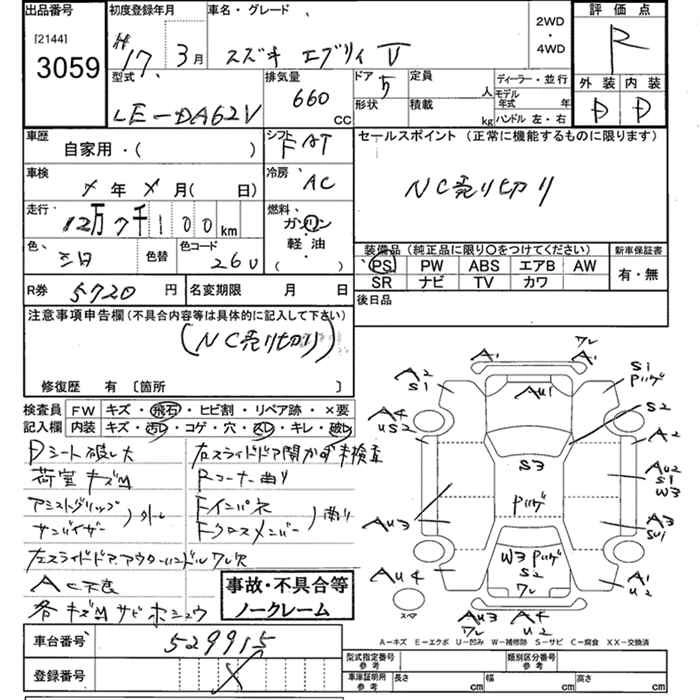 出品番号
[2144]
3059
初度登録年月
H 17. 3月
車名・グレード
スズキ エブリィ V
2WD
・
4WD
評価点
R
外装 内装
D D
型式
LE-DA62V
排気量
660
cc
ドア 5
形状
定員
人
積載
kg
ディーラー・並行
モデル
年式 年
ハンドル 左・右
車歴
自家用・( )
シフト
FAT
セールスポイント (正常に機能するものに限ります)
NC売り切り
車検
メ年メ月( 日)
冷房
AC
走行
12万7千100km
燃料
ガソリン
・
軽油
( )
色
色替
色コード
26U
装備品 (純正品に限り○をつけてください)
PS PW ABS エアB AW
SR ナビ TV カワ
新車保証書
有・無
R券 5720 円
名変期限 月 日
後日品
注意事項申告欄(不具合内容等は具体的に記入して下さい)
(NC売り切り)
修復歴 有 〔箇所 〕
検査員
記入欄
FW キズ・飛石・ヒビ割・リペア跡・×要
内装 キズ・汚レ・コゲ・穴・スレ・キレ・破レ
Dシート破レ大
荷室キズM
アシストグリップ
サンバイザー
)外し
左スライドドアアウターハンドルワレ欠
AC不良
各キズMサビホシュウ
左スライドドア開かず未検査
Rコーナー曲り
Fインパネ
Fクロスメンバー
)曲り
事故・不具合等
ノークレーム
車台番号 529915
登録番号
A2
S1
A1
ワレ
A1
S1
Pハゲ
AU1
A4
US2
S2
A2
S3
AU2
S1
W3
Pハゲ
AU3
A3
SU1
W3 Pハゲ
S2
ワレ
AU4
A1
U2
スペア
A3
ワレ
A4
U2
A-キズ E-エクボ U-凹み W-補修跡 S-サビ C-腐食 XX-交換済
型式指定番号
参考
類別区分番号
参考
車庫証明用
参考
長さ cm
幅 cm
高さ cm